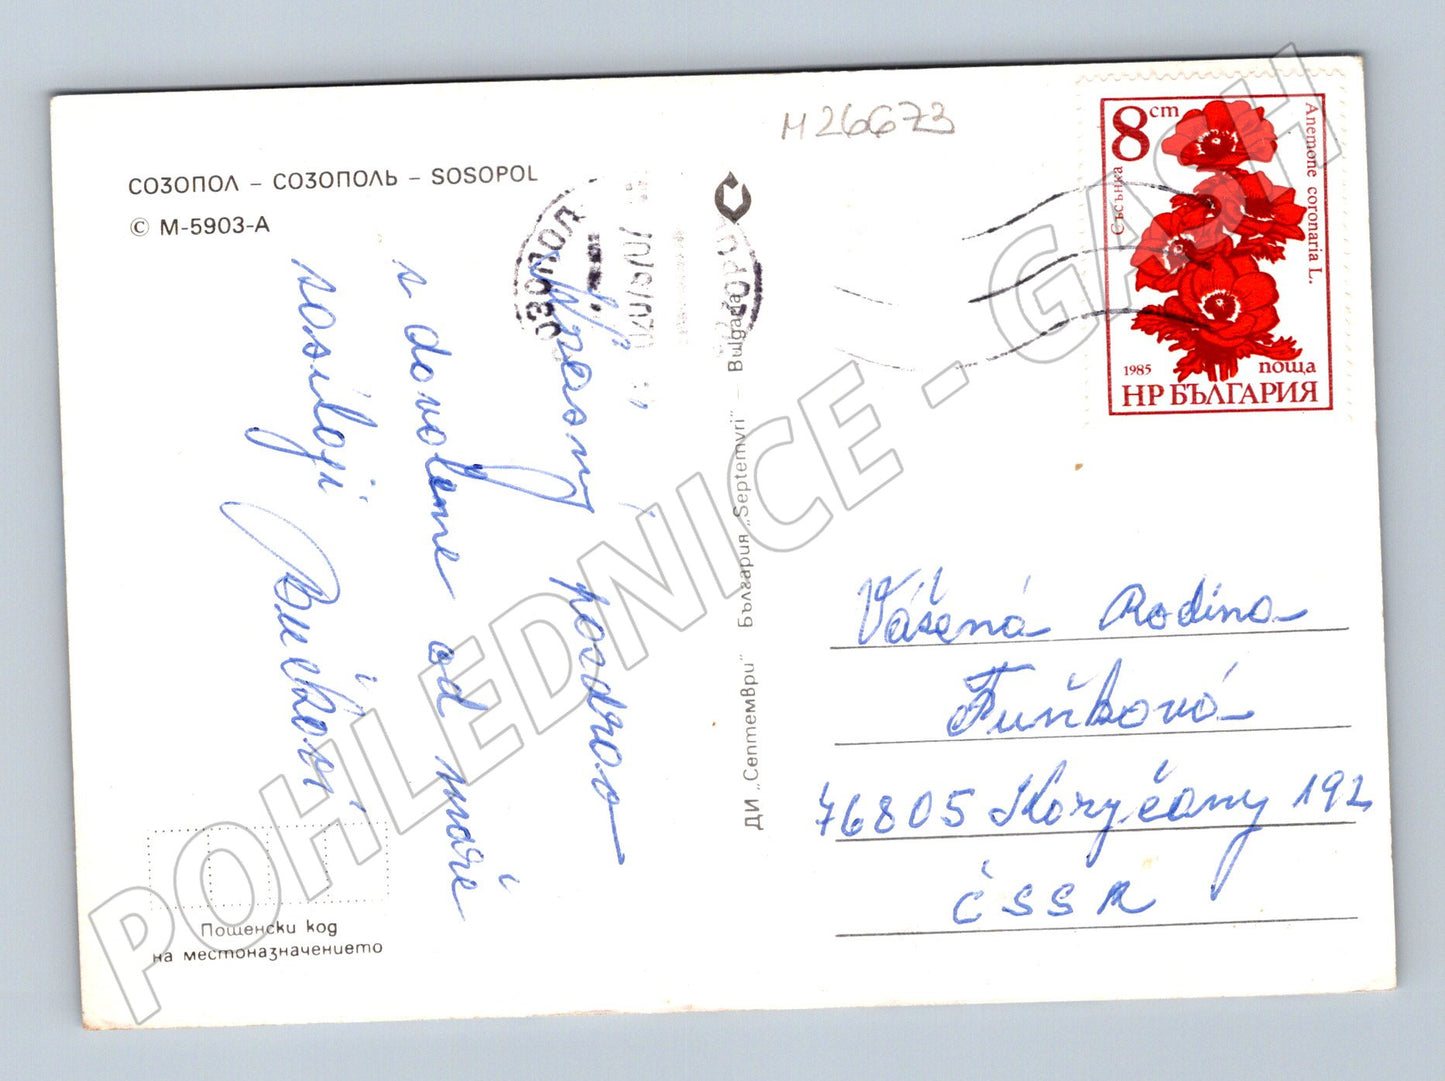 M26673
СОЗОПОЛ – СОЗОПОЛЬ – SOSOPOL
© М-5903-А
8 cm
Anemone coronaria L.
Съсънка
1985
поща
НР БЪЛГАРИЯ
СОЗОПОЛ
pozdrav
s dovolené od moře
posílají
ДИ „Септември“ България „Septemvri“ – Bulgaria
Vážená Rodina
Fuňková
76805 Koryčany 192
ČSSR
Пощенски код
на местоназначението
POHLEDNICE - GASH